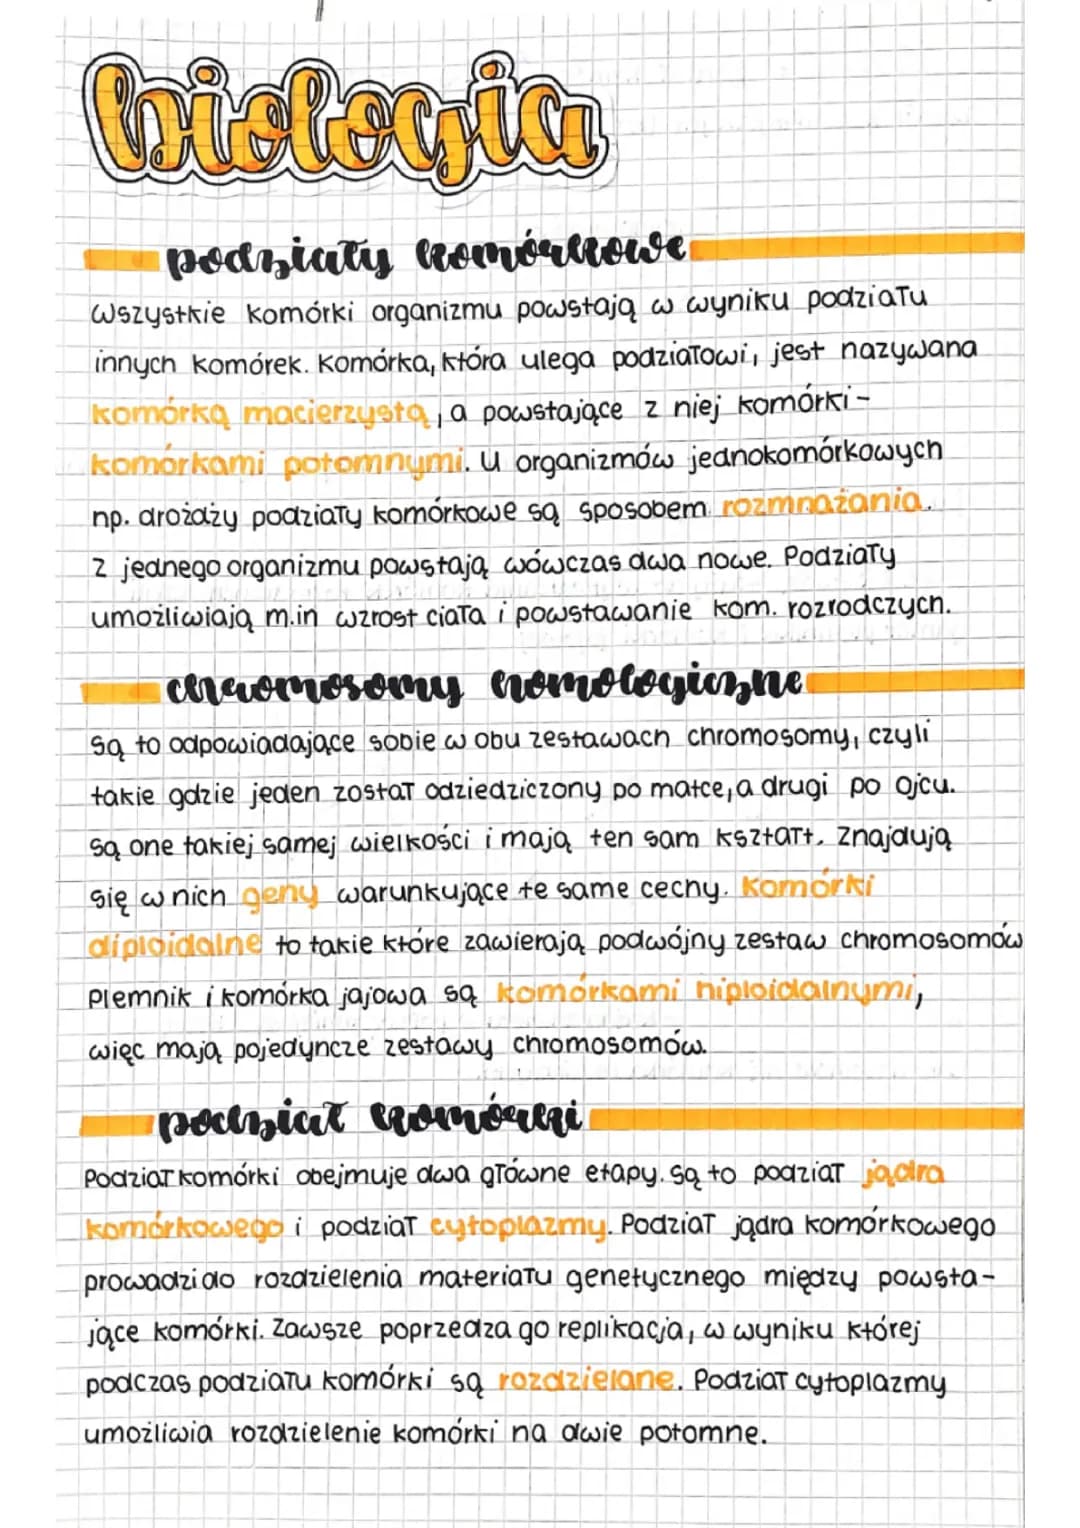 biologia
podziały komórkowe
Wszystkie komórki organizmu powstają w wyniku podziału
innych komórek. Komórka, która ulega podziałowi, jest nazywana
komórką macierzystą, a powstające z niej komórki-
komórkami potomnymi. U organizmów jednokomórkowych
np. drożdży podziały komórkowe są sposobem rozmnażania.
Z jednego organizmu powstają wówczas dwa nowe. Podziały
umożliwiają m.in wzrost ciała i powstawanie kom. rozrodczych.
chromosomy homologiczne
Są to odpowiadające sobie w obu zestawach chromosomy, czyli
takie gdzie jeden został odziedziczony po matce, a drugi po ojcu.
Są one takiej samej wielkości i mają ten sam kształt. Znajdują
się w nich geny warunkujące te same cechy. Komórki
diploidalne to takie które zawierają podwójny zestaw chromosomów
Plemnik i komórka jajowa są komórkami hiploidalnymi,
więc mają pojedyncze zestawy chromosomów.
podział komórki
Podział komórki obejmuje dwa główne etapy. Są to podział jądra
komórkowego i podział cytoplazmy. Podział jądra komórkowego
prowadzi do rozdzielenia materiału genetycznego między powsta-
jące komórki. Zawsze poprzedza go replikacja, w wyniku której
podczas podziału komórki są rozdzielane. Podział cytoplazmy
umożliwia rozdzielenie komórki na dwie potomne.